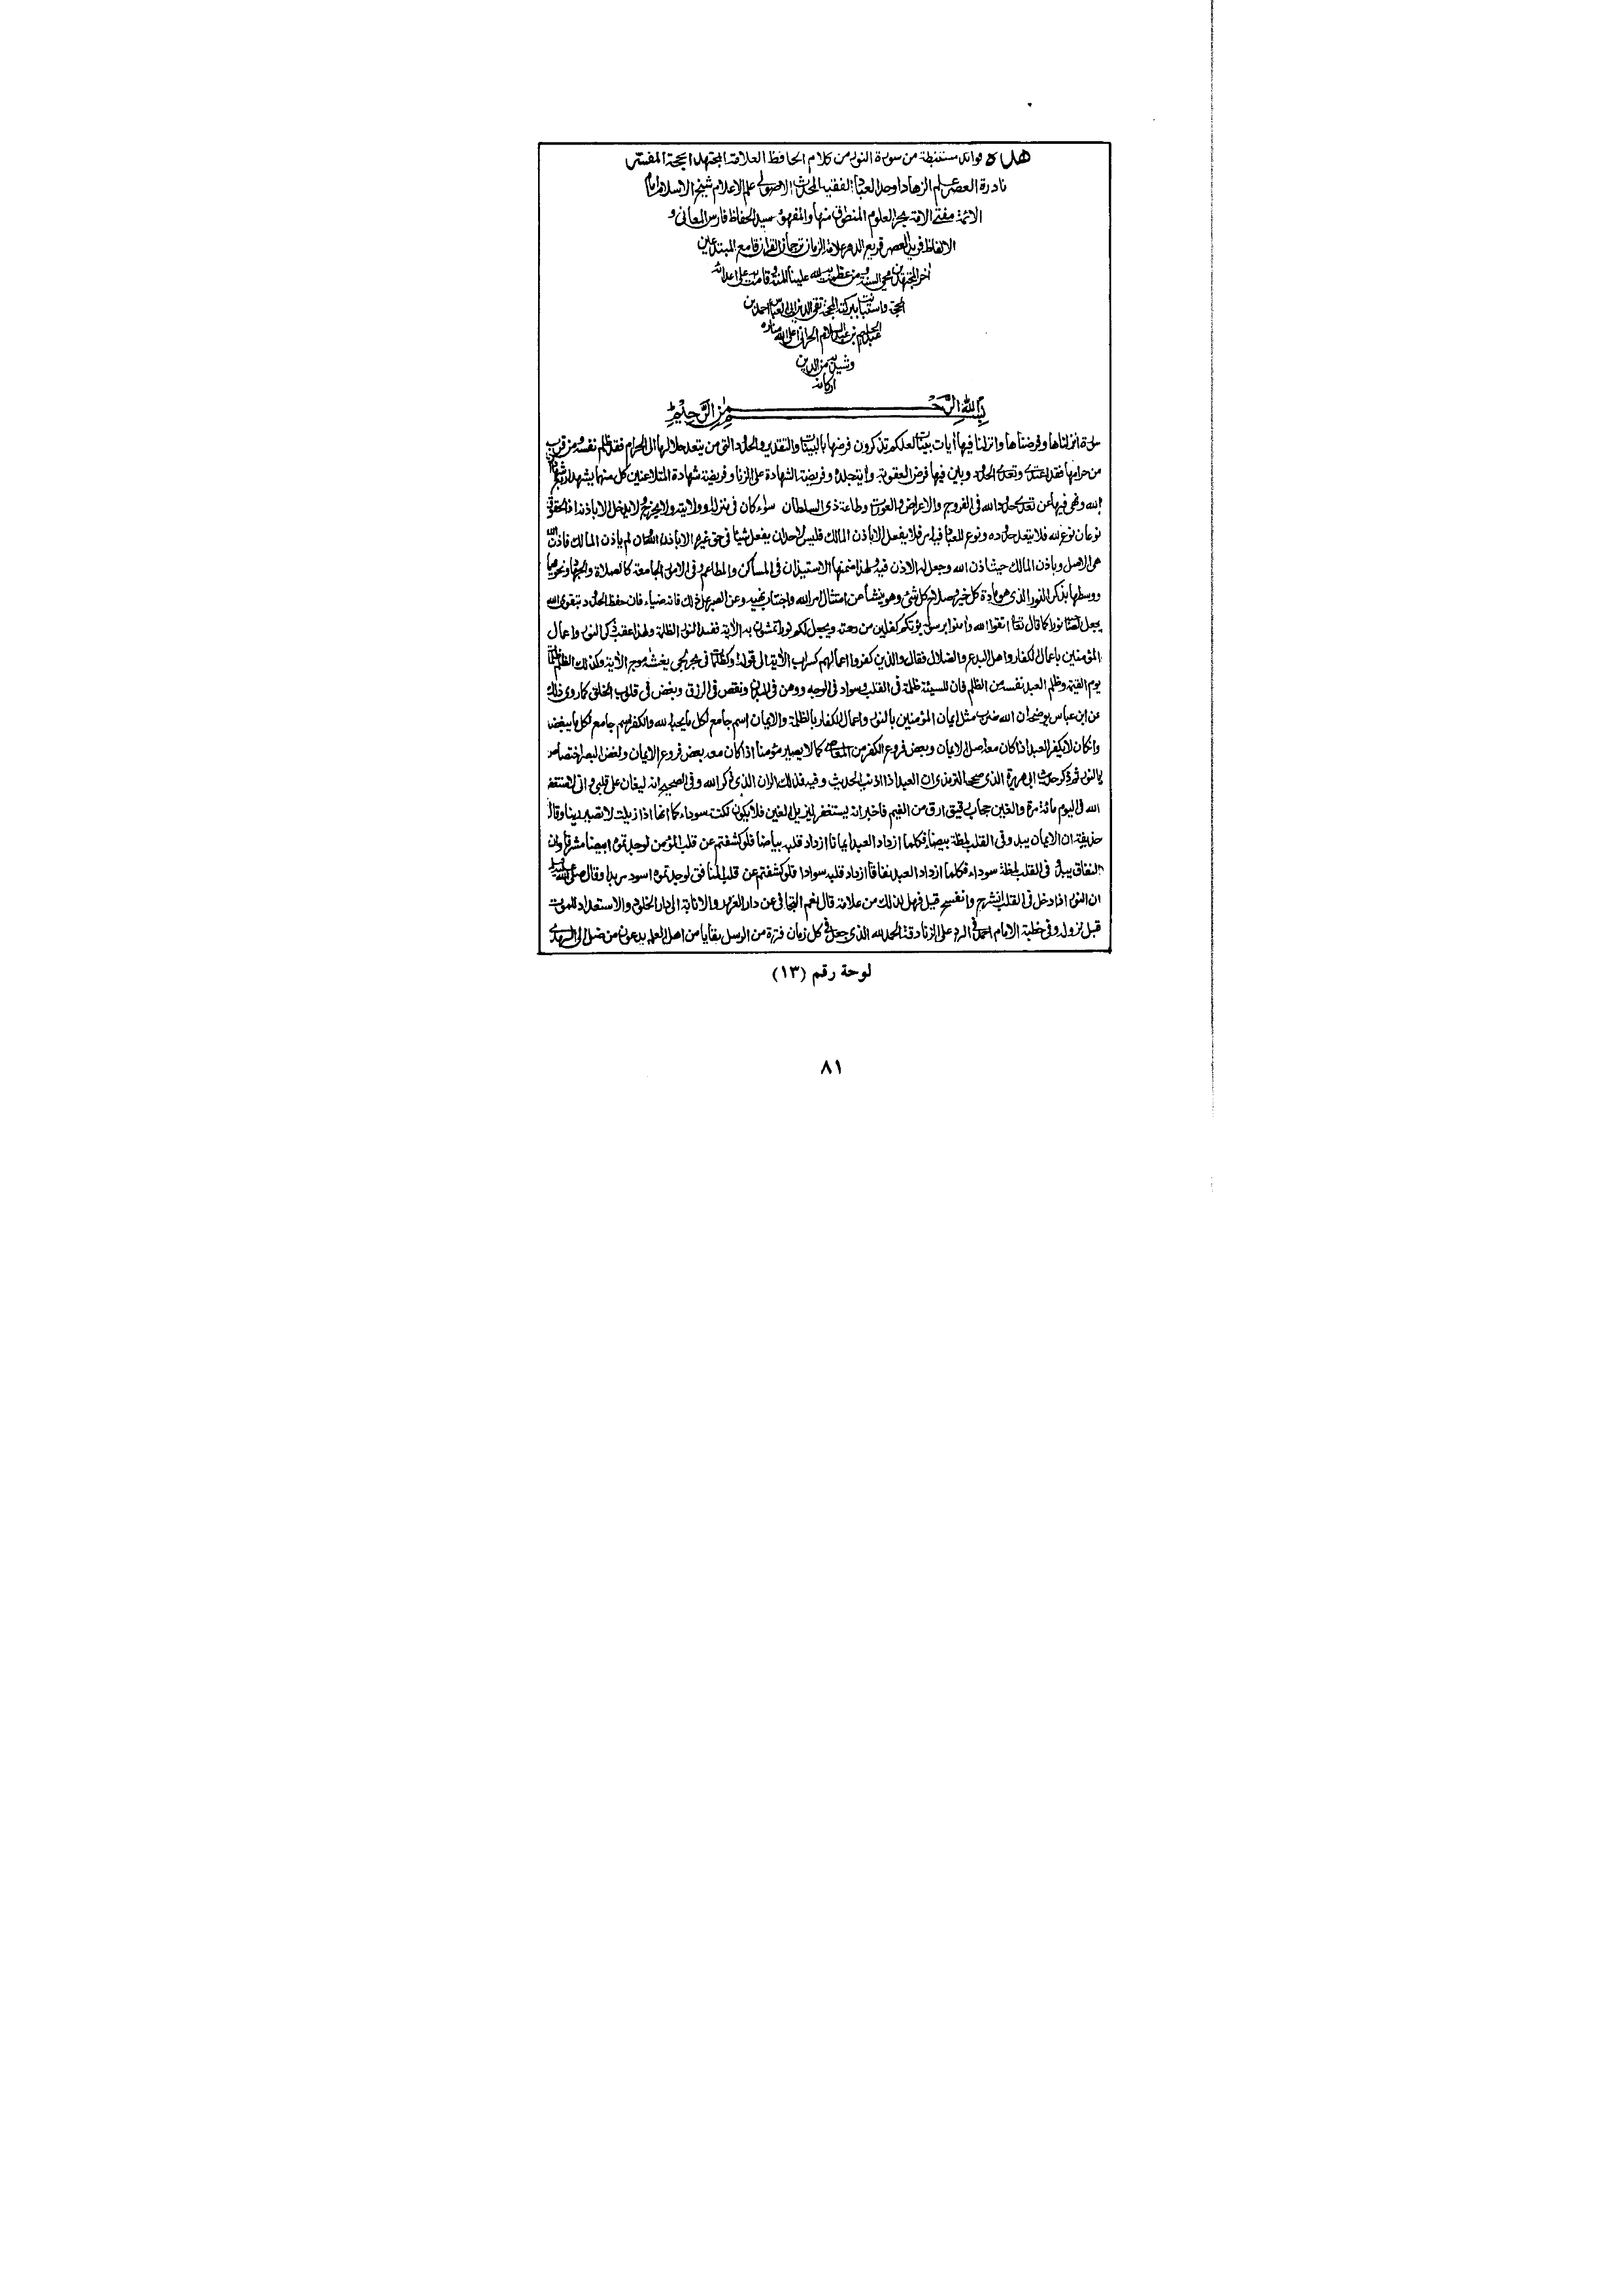 هذه فوائد مستنبطة من سورة النور من كلام الحافظ العلامة المجتهد الحجة المفسر
نادرة العصر علم الزهاد اوحد العباد الفقيه المحدث الاصولي علم الاعلام شيخ الاسلام امام
الائمة مفتي الامة بحر العلوم المنطوق منها والمفهوم سيد الحفاظ فارس المعاني و
الالفاظ فريد العصر قريع الدهر علامة الزمان ترجمان القرآن قامع المبتدعين
آخر المجتهدين محي السنة ومن عظمت به لله علينا المنة وقامت به على اعدائه
الحجة واستبانت ببركته المحجة تقي الدين ابي العباس احمد بن
عبد الحليم بن عبد السلام الحراني اعلى الله مناره
وشيد به من الدين
اركانه
بسم الله الرحمن الرحيم
سورة انزلناها وفرضناها وانزلنا فيها آيات بينات لعلكم تذكرون فرضها بالبينات والتقدير والحدود التي من يتعد حلالها الى الحرام فقد ظلم نفسه ومن قرب
من حرامها فقد اعتدى وتعدى الحدود وبين فيها فرض العقوبة وآية الجلد وفريضة الشهادة على الزنا وفريضة شهادة المتلاعنين كل منهما يشهد اربع شهادات
بالله ونهى فيها عن تعدى حدود الله في الفروج والاعراض والعورات وطاعة ذي السلطان سواء كان في منزله وولايته ولا يخرج ولا يدخل الا باذنه اذ الحقوق
نوعان نوع لله فلا يتعد حدوده ونوع للعباد فيه امر فلا يفعل الا باذن المالك فليس لاحد ان يفعل شيئا في حق غيره الا باذن الله وان لم ياذن المالك فاذن الله
هو الاصل وباذن المالك حيث اذن الله وجعل له الاذن فيه ولهذا ضمنها الاستيذان في المساكن والمطاعم وفي الامور الجامعة كالصلاة والجهاد ونحوهما
ووسطها بذكر النور الذي هو مادة كل خير وصلاح كل شئ وهو ينشأ عن امتثال امر الله واجتناب نهيه وعن الصبر على ذلك فانه ضياء فان حفظ الحدود بتقوى الله
يجعل لصاحبه نورا كما قال تعالى اتقوا الله وآمنوا برسوله يؤتكم كفلين من رحمته ويجعل لكم نورا تمشون به الآية فضد النور الظلمة ولهذا عقب ذكر النور واعمال
المؤمنين باعمال الكفار واهل البدع والضلال فقال والذين كفروا اعمالهم كسراب الآية الى قوله وكظلمات في بحر لجي يغشاه موج الآية وكذلك الظلم ظلمات
يوم القيمة وظلم العبد نفسه من الظلم فان للسيئة ظلمة في القلب وسواد في الوجه ووهن في البدن ونقص في الرزق وبغض في قلوب الخلق كما روى ذلك
عن ابن عباس يوضحه ان الله ضرب مثل ايمان المؤمنين بالنور واعمال الكفار بالظلمة والايمان اسم جامع لكل ما يحبه الله والكفر اسم جامع لكل ما يبغضه
وان كان لا يكفر العبد اذا كان معه اصل الايمان وبعض فروع الكفر من المعاصي كما لا يصير مؤمنا اذا كان معه بعض فروع الايمان ولغض البصر اختصاص
بالنور ثم ذكر حديث ابي هريرة الذي صححه الترمذي ان العبد اذا اذنب الحديث وفيه فذلك الران الذي ذكر الله وفي الصحيح انه ليغان على قلبي واني لاستغفر
الله في اليوم مائة مرة والغين حجاب رقيق ارق من الغيم فاخبر انه يستغفر ليزيل الغين فلا يكون نكتة سوداء كما انها اذا ازيلت لا تصير رينا وقال
حذيفة ان الايمان يبدو في القلب لمظة بيضاء فكلما ازداد العبد ايمانا ازداد قلبه بياضا فلو كشفتم عن قلب المؤمن لوجدتموه ابيضا مشرقا وان
النفاق يبدو في القلب لمظة سوداء فكلما ازداد العبد نفاقا ازداد قلبه سوادا فلو كشفتم عن قلب المنافق لوجدتموه اسود مربدا وقال صلى الله عليه وسلم
ان النور اذا دخل في القلب انشرح وانفسح قيل فهل لذلك من علامة قال نعم التجافي عن دار الغرور والانابة الى دار الخلود والاستعداد للموت
قبل نزوله وفي خطبة الامام احمد في الرد على الزنادقة الحمد لله الذي جعل في كل زمان فترة من الرسل بقايا من اهل العلم يدعون من ضل الى الهدى
لوحة رقم (١٣)
٨١